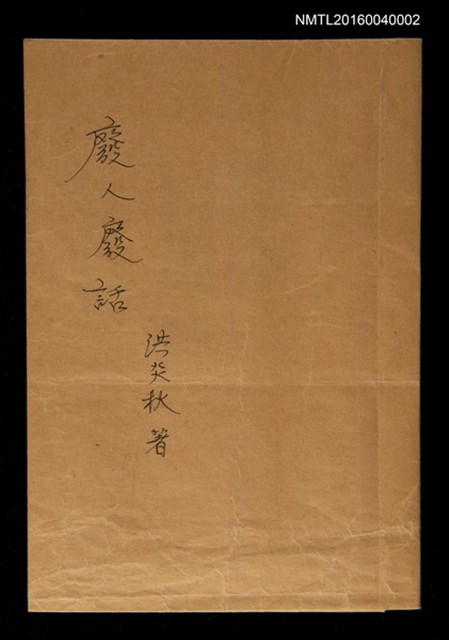 NMTL20160040002
廢人廢話
洪炎秋箸